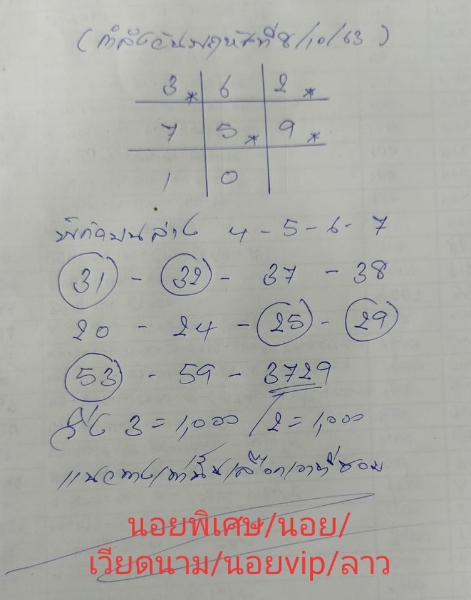 (กำลังวันพฤหัสที่8/10/63)
3* 6 2*
7 5* 9*
1 0
พิกัดบนล่าง 4-5-6-7
31 - 32 - 37 - 38
20 - 24 - 25 - 29
53 - 59 - 3729
วิ่ง 3=1,000/2=1,000
แนวทาง/เท่านั้น/เลือก/
นอยพิเศษ/นอย/
เวียดนาม/นอยvip/ลาว